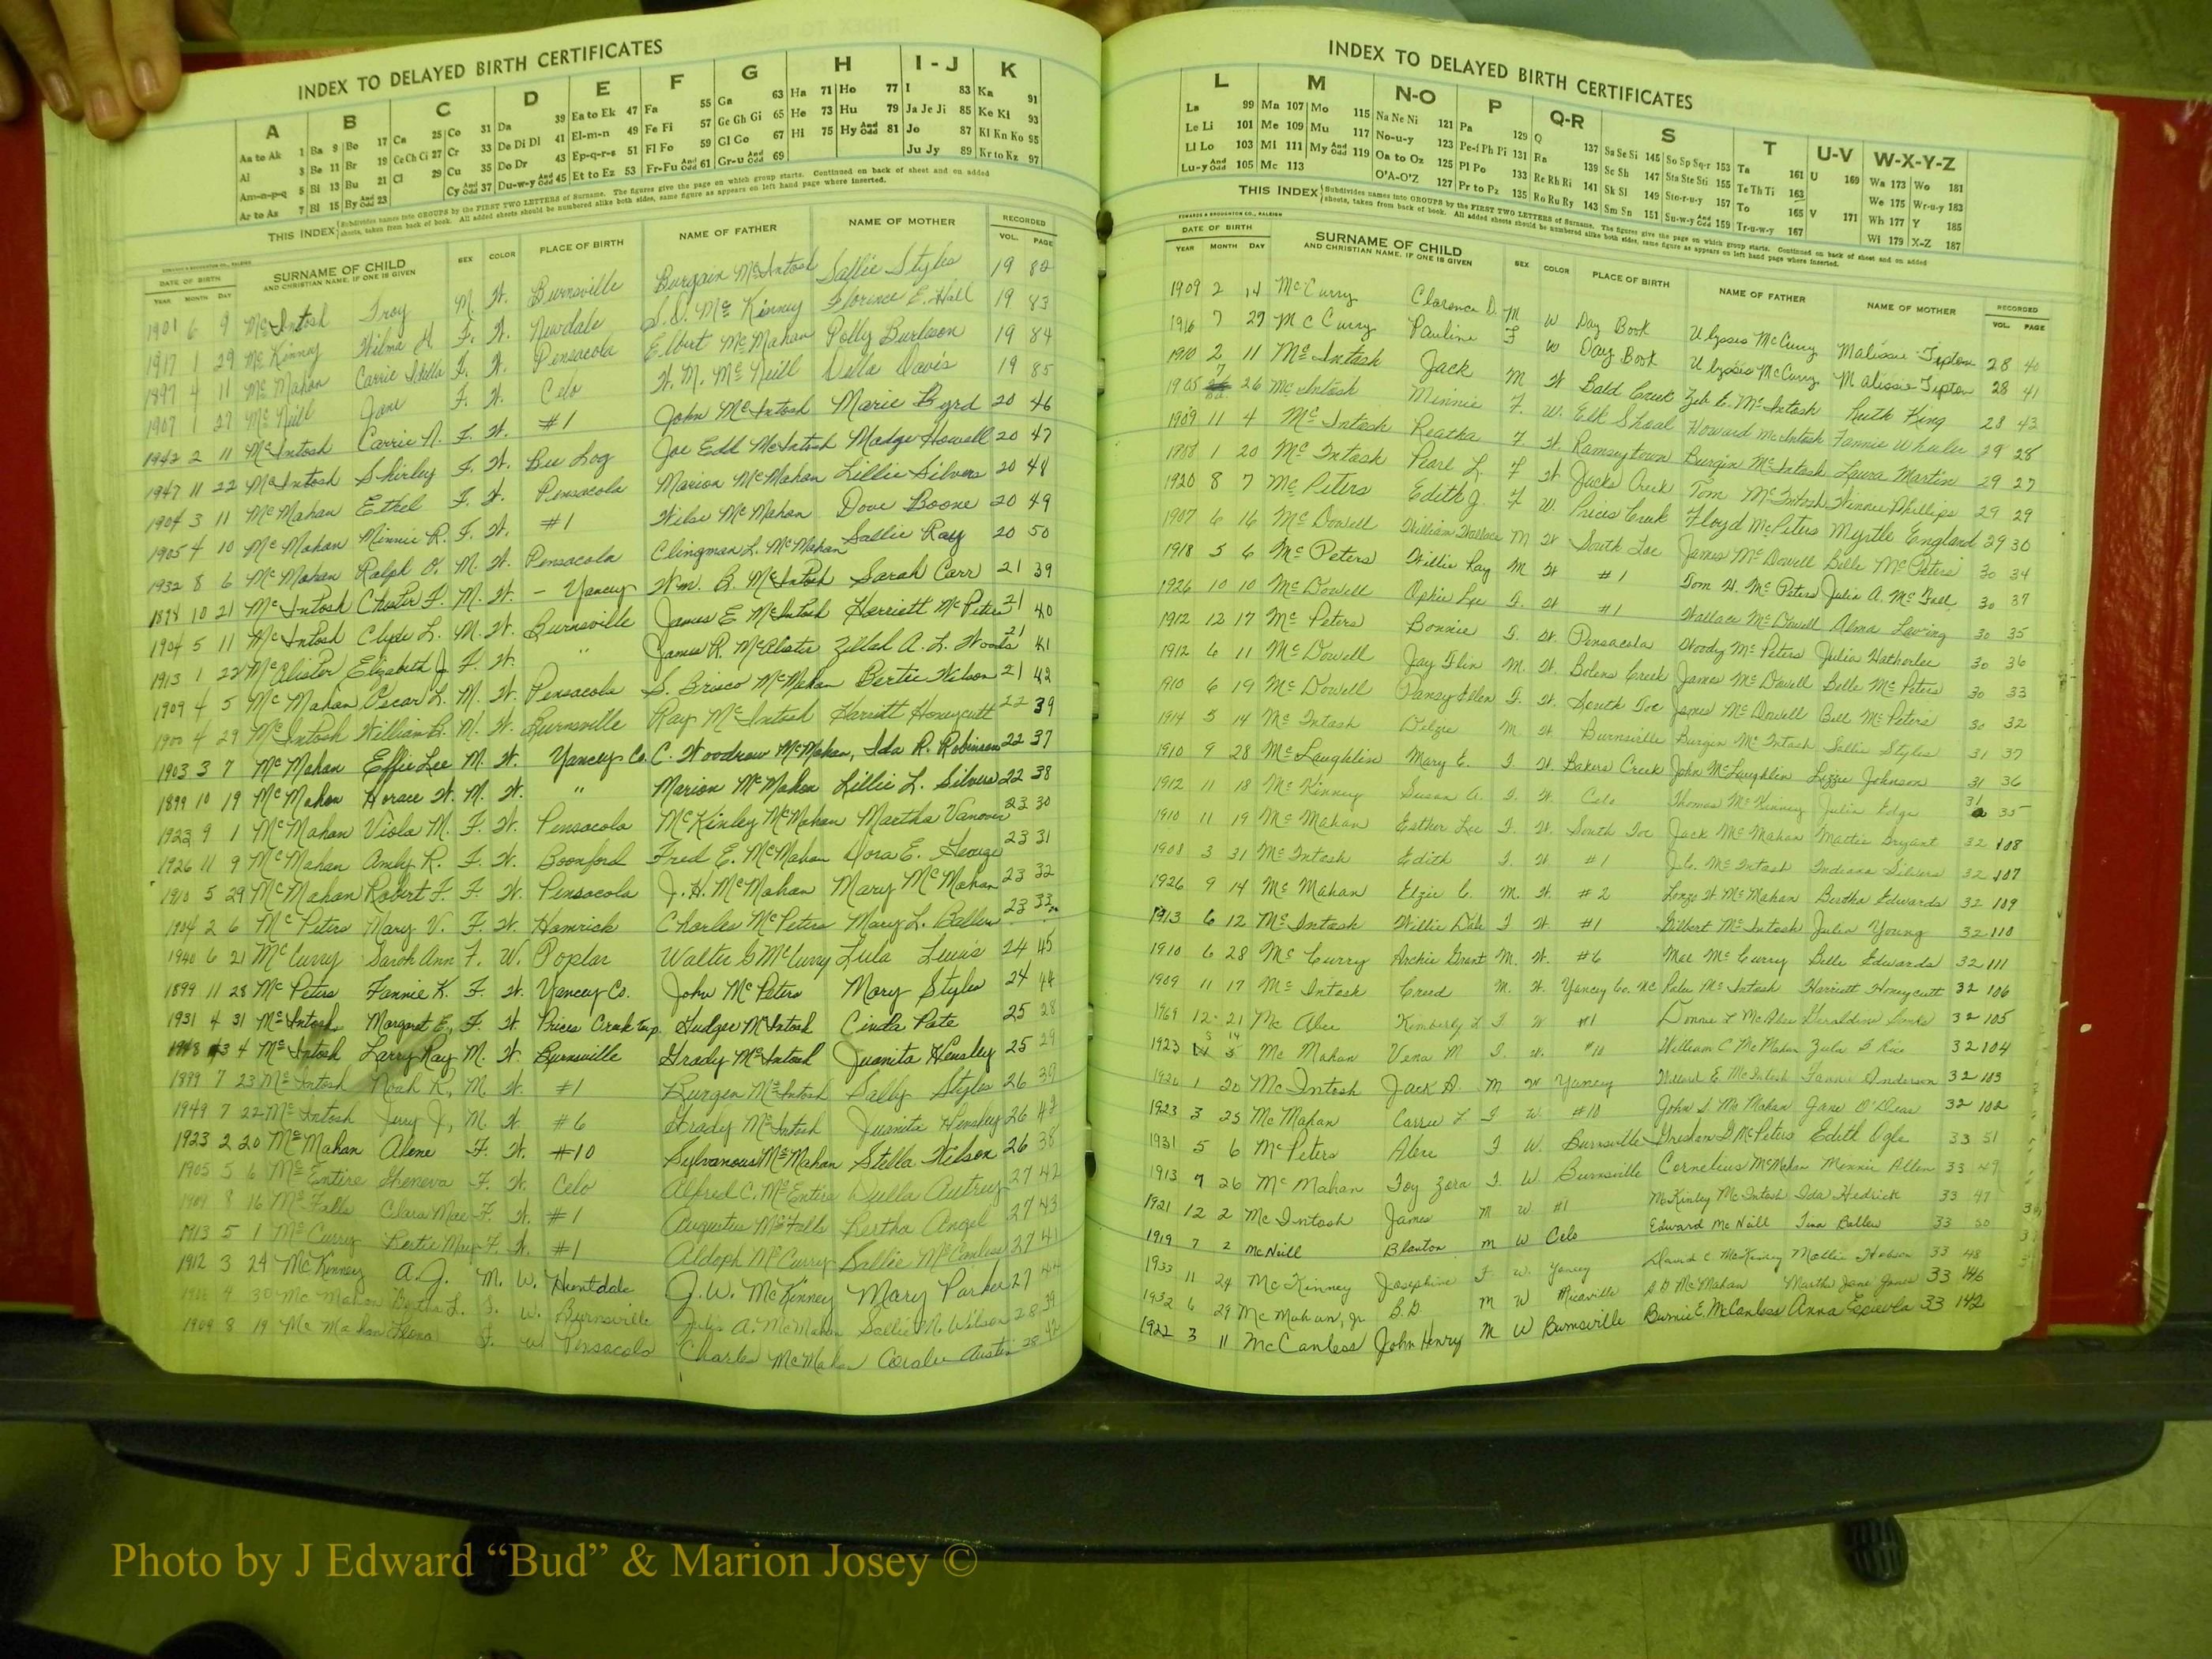 INDEX TO DELAYED BIRTH CERTIFICATES
A B C D E F G H I-J K
Aa to Ak 1 Ba 9 Bo 17 Ca 25 Co 31 Da 39 Ea to Ek 47 Fa 55 Ga 63 Ha 71 Ho 77 I 83 Ka 91
Al 3 Be 11 Br 19 Ce Ch Ci 27 Cr 33 De Di Dl 41 El-m-n 49 Fe Fi 57 Ge Gh Gi 65 He 73 Hu 79 Ja Je Ji 85 Ke Ki 93
Am-n-p-q 5 Bi 13 Bu 21 Cl 29 Cu 35 Do Dr 43 Ep-q-r-s 51 Fl Fo 59 Gl Go 67 Hi 75 Hy And Odd 81 Jo 87 Kl Kn Ko 95
Ar to Az 7 Bl 15 By And Odd 23 Cy And Odd 37 Du-w-y And Odd 45 Et to Ez 53 Fr-Fu And Odd 61 Gr-u And Odd 69 Ju Jy 89 Kr to Kz 97
THIS INDEX Subdivides names into GROUPS by the FIRST TWO LETTERS of Surname. The figures give the page on which group starts. Continued on back of sheet and on added
sheets, taken from back of book. All added sheets should be numbered alike both sides, same figure as appears on left hand page where inserted.
DATE OF BIRTH SURNAME OF CHILD SEX COLOR PLACE OF BIRTH NAME OF FATHER NAME OF MOTHER RECORDED
YEAR MONTH DAY AND CHRISTIAN NAME, IF ONE IS GIVEN VOL. PAGE
1901 6 9 McIntosh Troy M. W. Burnsville Burgain McIntosh Sallie Styles 19 82
1917 1 29 McKinney Wilma H. F. W. Newdale S.D. McKinney Florence E. Hall 19 83
1897 4 11 McMahan Carrie Idella F. W. Pensacola Elbert McMahan Polly Burleson 19 84
1907 1 27 McNeill Jane F. W. Celo W. M. McNeill Della Davis 19 85
1942 2 11 McIntosh Carrie N. F. W. #1 John McIntosh Marie Byrd 20 46
1947 11 22 McIntosh Shirley F. W. Bee Log Joe Edd McIntosh Madge Howell 20 47
1904 3 11 McMahan Ethel F. W. Pensacola Marion McMahan Lillie Silvers 20 48
1905 4 10 McMahan Minnie R. F. W. #1 Wilse McMahan Dove Boone 20 49
1932 8 6 McMahan Ralph O. M. W. Pensacola Clingman L. McMahan Sallie Ray 20 50
1898 10 21 McIntosh Chester F. M. W. - Yancey Wm. B. McIntosh Sarah Carr 21 39
1904 5 11 McIntosh Clyde L. M. W. Burnsville James E McIntosh Harriett McPeters 21 40
1913 1 22 McAlister Elizabeth J. F. W. " James R. McAlister Zillah A. L. Woods 21 41
1909 4 5 McMahan Oscar L. M. W. Pensacola S. Brisco McMahan Bertie Wilson 21 42
1900 4 29 McIntosh William B. M. W. Burnsville Ray McIntosh Harriett Honeycutt 22 39
1903 3 7 McMahan Effie Lee M. W. Yancey Co. C. Woodrow McMahan, Ida R. Robinson 22 37
1899 10 19 McMahan Horace W. M. W. " Marion McMahan Lillie L. Silvers 22 38
1923 9 1 McMahan Viola M. F. W. Pensacola McKinley McMahan Martha Vanover 23 30
1926 11 9 McMahan Amly R. F. W. Boonford Fred E. McMahan Dora E. George 23 31
1910 5 29 McMahan Robert F. F. W. Pensacola J. H. McMahan Mary McMahan 23 32
1904 2 6 McPeters Mary V. F. W. Hamrick Charles McPeters Mary L. Ballew 23 33
1940 6 21 McCurry Sarah Ann F. W. Poplar Walter G McCurry Lula Lewis 24 45
1899 11 28 McPeters Fannie K. F. W. Yancey Co. John McPeters Mary Styles 24 44
1931 4 31 McIntosh Margaret E., F. W. Prices Creek Twp. Hudger McIntosh Cinda Pate 25 28
1943 3 4 McIntosh Larry Ray M. W. Burnsville Grady McIntosh Juanita Hensley 25 29
1899 7 23 McIntosh Noah R., M. W. #1 Burgen McIntosh Sally Styles 26 39
1949 7 22 McIntosh Jery J., M. W #6 Grady McIntosh Juanita Hensley 26 47
1923 2 20 McMahan Alene F. W. #10 Sylvanous McMahan Stella Wilson 26 38
1905 5 6 McEntire Gheneva F. W. Celo Alfred C. McEntire Dulla Autrey 27 42
1909 8 16 McFalls Clara Mae F. W. #1 Augustus McFalls Bertha Angel 27 43
1913 5 1 McCurry Bertie May F. W. #1 Aldoph McCurry Sallie McCanless 27 41
1912 3 24 McKinney A.J. M. W. Huntdale J.W. McKinney Mary Parker 27 44
4 30 McMahan Bertha L. F. W. Burnsville Julis A. McMahan Sallie N. Wilson 28 39
1909 8 19 McMahan Flena F. W Pensacola Charles McMahan Coralee Austin 28 42
INDEX TO DELAYED BIRTH CERTIFICATES
L M N-O P Q-R S T U-V W-X-Y-Z
La 99 Ma 107 Mo 115 Na Ne Ni 121 Pa 129 Q 137 Sa Se Si 145 So Sp Sq-r 153 Ta 161 U 169 Wa 173 Wo 181
Le Li 101 Me 109 Mu 117 No-u-y 123 Pe-f Ph Pi 131 Ra 139 Sc Sh 147 Sta Ste Sti 155 Te Th Ti 163 We 175 Wr-u-y 183
Ll Lo 103 Mi 111 My And Odd 119 Oa to Oz 125 Pl Po 133 Re Rh Ri 141 Sk Sl 149 Sto-r-u-y 157 To 165 V 171 Wh 177 Y 185
Lu-y And Odd 105 Mc 113 O'A-O'Z 127 Pr to Pz 135 Ro Ru Ry 143 Sm Sn 151 Su-w-y And Odd 159 Tr-u-w-y 167 Wi 179 X-Z 187
THIS INDEX Subdivides names into GROUPS by the FIRST TWO LETTERS of Surname. The figures give the page on which group starts. Continued on back of sheet and on added
sheets, taken from back of book. All added sheets should be numbered alike both sides, same figure as appears on left hand page where inserted.
EDWARDS & BROUGHTON CO., RALEIGH
DATE OF BIRTH SURNAME OF CHILD SEX COLOR PLACE OF BIRTH NAME OF FATHER NAME OF MOTHER RECORDED
YEAR MONTH DAY AND CHRISTIAN NAME, IF ONE IS GIVEN VOL. PAGE
1909 2 14 McCurry Clarence D. M W Day Book Ulysses McCurry Malissie Tipton 28 40
1916 7 27 McCurry Pauline F W Day Book Ulyssis McCurry Malissie Tipton 28 41
1910 2 11 McIntosh Jack M W Bald Creek Zeb C. McIntosh Ruth King 28 43
1905 7 26 McIntosh Minnie F. W. Elk Shoal Howard McIntosh Fannie Wheeler 29 28
1909 11 4 McIntosh Reatha F W. Ramseytown Burgin McIntosh Laura Martin 29 27
1908 1 20 McIntosh Pearl L. F W Jacks Creek Tom McIntosh Winnie Phillips 29 29
1920 8 7 McPeters Edith J. F W. Prices Creek Floyd McPeters Myrtle England 29 30
1907 6 16 McDowell William Wallace M W South Toe James McDowell Belle McPeters 30 34
1918 5 6 McPeters Willie Ray M W #1 Tom W. McPeters Julia A. McFall 30 37
1926 10 10 McDowell Ophie Lee F. W #1 Wallace McDowell Alma Laving 30 35
1912 12 17 McPeters Bonnie F. W. Pensacola Woody McPeters Julia Hatherlee 30 36
1912 6 11 McDowell Jay Flin M. W. Bolens Creek James McDowell Belle McPeters 30 33
1910 6 19 McDowell Pansy Ellen F. W. South Toe James McDowell Bell McPeters 30 32
1914 5 14 McIntosh Delzie M W Burnsville Burgen McIntosh Sallie Styles 31 37
1910 9 28 McLaughlin Mary E. F. W. Bakers Creek John McLaughlin Lizzie Johnson 31 36
1912 11 18 McKinney Susan A. F. W. Celo Thomas McKinney Julia Edge 31 35
1910 11 19 McMahan Esther Lee F. W. South Toe Jack McMahan Mattie Bryant 32 108
1908 3 31 McIntosh Edith F. W #1 J.C. McIntosh Indiana Silvers 32 107
1926 9 14 McMahan Elzie C. M. W. #2 Lonzo W McMahan Bertha Edwards 32 109
1913 6 12 McIntosh Willie Dale F W #1 Gilbert McIntosh Julia Young 32 110
1910 6 28 McCurry Archie Grant M. W. #6 Mac McCurry Belle Edwards 32 111
1909 11 17 McIntosh Creed M. W. Yancey Co. NC McIntosh Harriett Honeycutt 32 106
1969 12 21 McAbee Kimberly L F W #1 Donnie L McAbee Geraldine 32 105
1923 5 14 McMahan Vena M F. W. #10 William C McMahan Zula B Rice 32 104
1926 1 20 McIntosh Jack D. M W Yancey Willard E McIntosh Fannie Anderson 32 103
1923 3 25 McMahan Carrie L F W #10 John S. McMahan Jane O'Dear 32 102
1931 5 6 McPeters Alene F W. Burnsville Gresham G McPeters Edith Ogle 33 51
1913 7 26 McMahan Toy Zora F. W. Burnsville Cornelius McMahan Minnie Allen 33 49
1921 12 2 McIntosh James M W #1 McKinley McIntosh Ida Hedrick 33 47
1919 7 2 McNeill Blanton M W Celo Edward McNeill Tina Ballew 33 50
1933 11 24 McKinney Josephine F W. Yancey David C. McKinney Mollie Hobson 33 48
1932 6 29 McMahan, Jr. B.D. M W Micaville B D McMahan Martha Jane Jones 33 146
1922 3 11 McCanless John Henry M W Burnsville Burnie E. McCanless Anna Espievola 33 142
Photo by J Edward “Bud” & Marion Josey ©